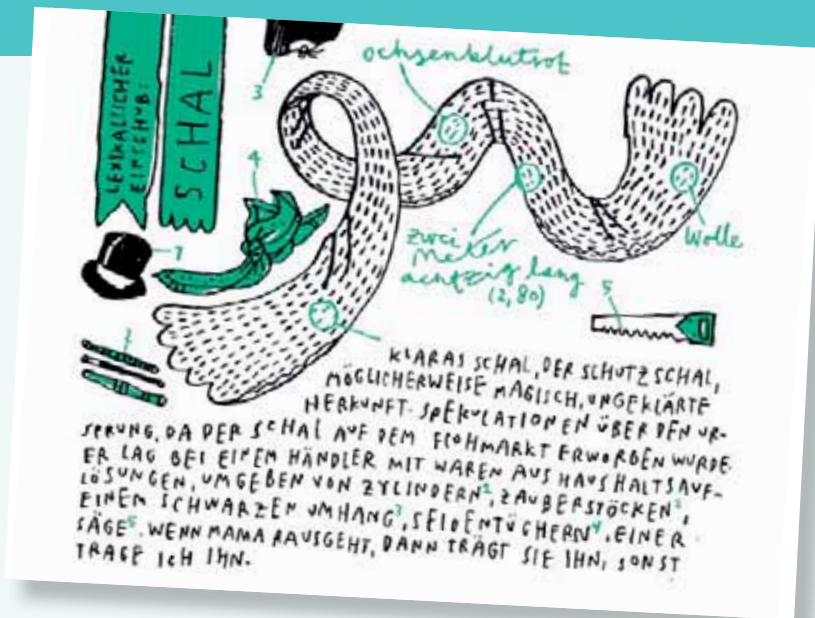 LEXIKALISCHER
EINSCHUB:
SCHAL
3
ochsenblutrot
4
1
zwei
Meter
achtzig lang
(2,80)
Wolle
5
2
KLARAS SCHAL, DER SCHUTZSCHAL,
MÖGLICHERWEISE MAGISCH, UNGEKLÄRTE
HERKUNFT. SPEKULATIONEN ÜBER DEN UR-
SPRUNG, DA DER SCHAL AUF DEM FLOHMARKT ERWORBEN WURDE.
ER LAG BEI EINEM HÄNDLER MIT WAREN AUS HAUSHALTSAUF-
LÖSUNGEN, UMGEBEN VON ZYLINDERN¹, ZAUBERSTÖCKEN²,
EINEM SCHWARZEN UMHANG³, SEIDENTÜCHERN⁴, EINER
SÄGE⁵. WENN MAMA RAUSGEHT, DANN TRÄGT SIE IHN, SONST
TRAGE ICH IHN.